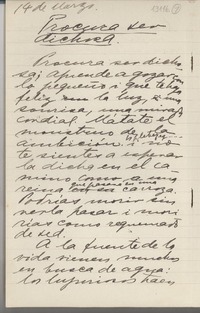 14 de Marzo.
Procura ser
dichosa.
Procura ser dicho-
sa; aprende a gozar
lo pequeño; que te haga
feliz con la luz, una
sonrisa, una mirada
cordial. Mátate el
monstruo de la
ambición i no
te sientes a esperar
la dicha en el ca-
mino como a una
reina en su carroza.
Podrías morir sin
verla pasar i mori-
rías como requemada
de sed.
A la fuente de la
vida vienen muchos
en busca de agua:
los lujuriosos traen